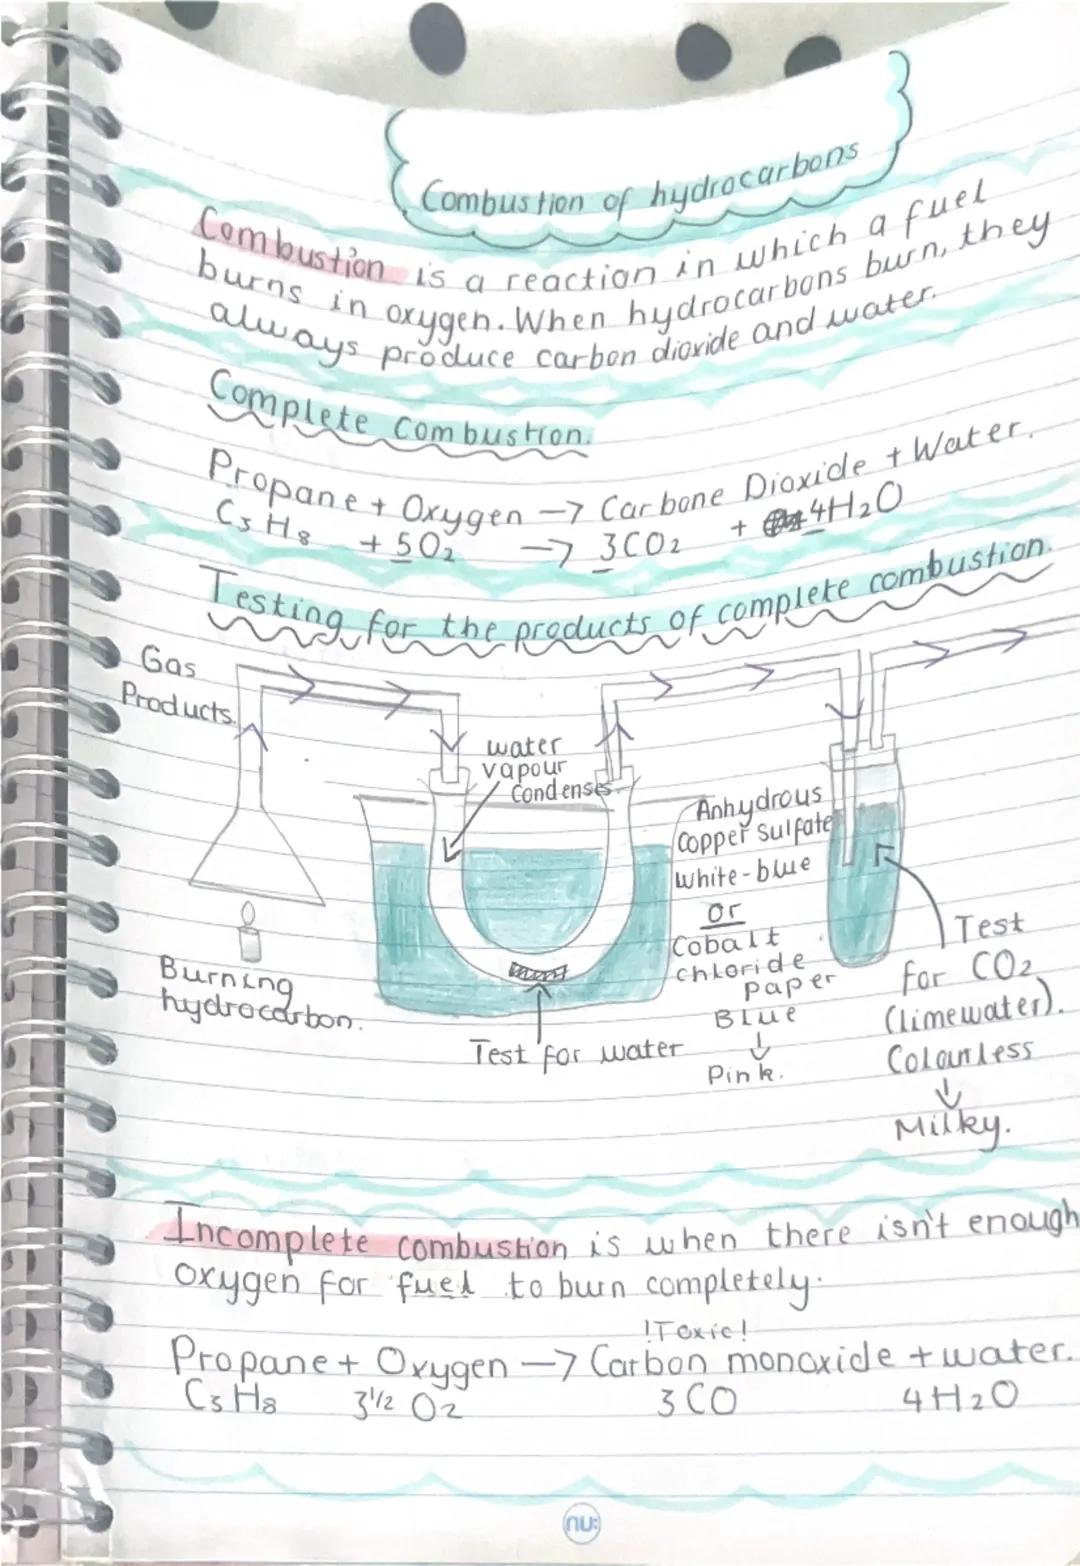 Combustion of hydrocarbons
Combustion is a reaction in which a fuel
burns in oxygen. When hydrocarbons burn, they
always produce carbon dioxide and water.
Complete Combustion.
Propane + Oxygen → Carbone Dioxide + Water.
C3H8 + 5O2 → 3CO2 + 4H2O
Testing for the products of complete combustion.
Gas
Products.
water
vapour
Condenses.
Anhydrous
Copper Sulfate
White-blue
or
Cobalt
chloride
paper
Blue
↓
Pink.
Burning
hydrocarbon.
Test for water
Test
for CO2
(limewater).
Colourless
↓
Milky.
Incomplete combustion is when there isn't enough
oxygen for fuel to burn completely.
!Toxic!
Propane + Oxygen → Carbon monoxide + water.
C3H8 3 1/2 O2 3CO 4H2O
nu: